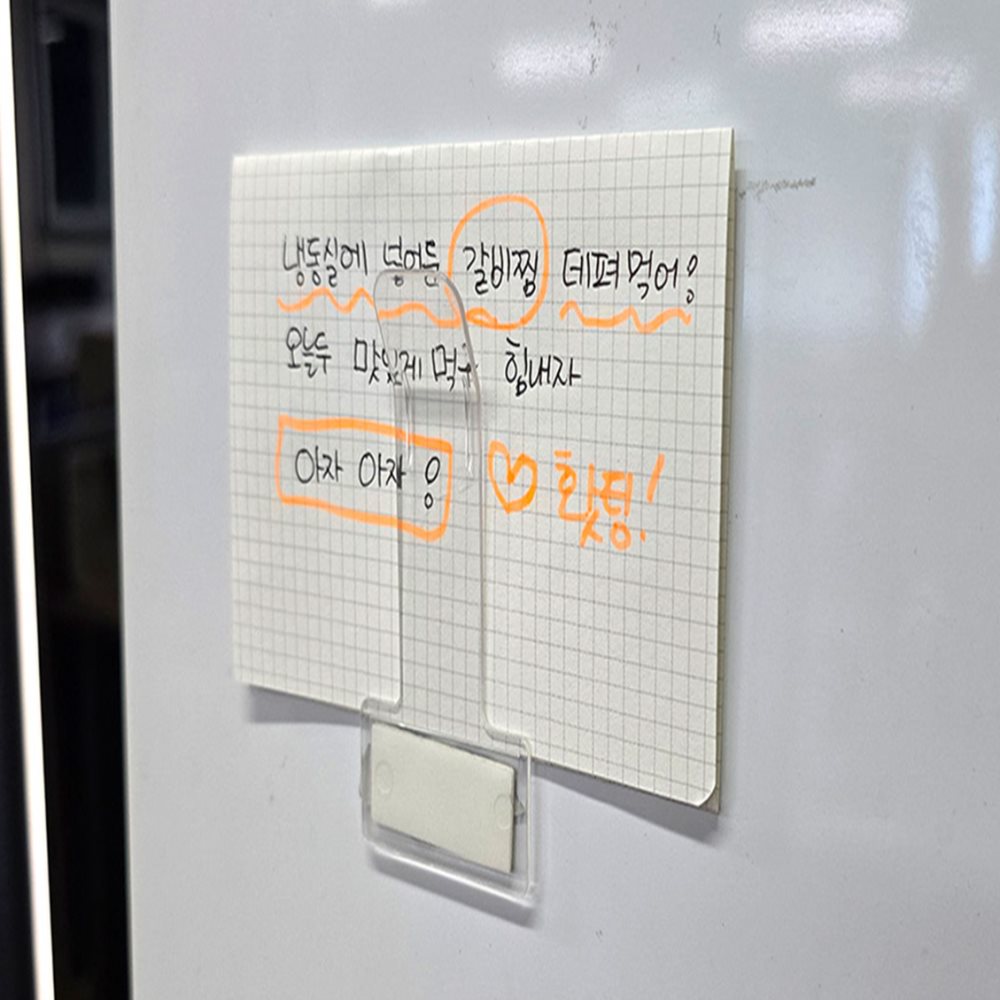 냉동실에 넣어둔 갈비찜 데펴먹어!
오늘두 맛있게 먹구 힘내자
아자 아자 ! ♡ 홧팅!